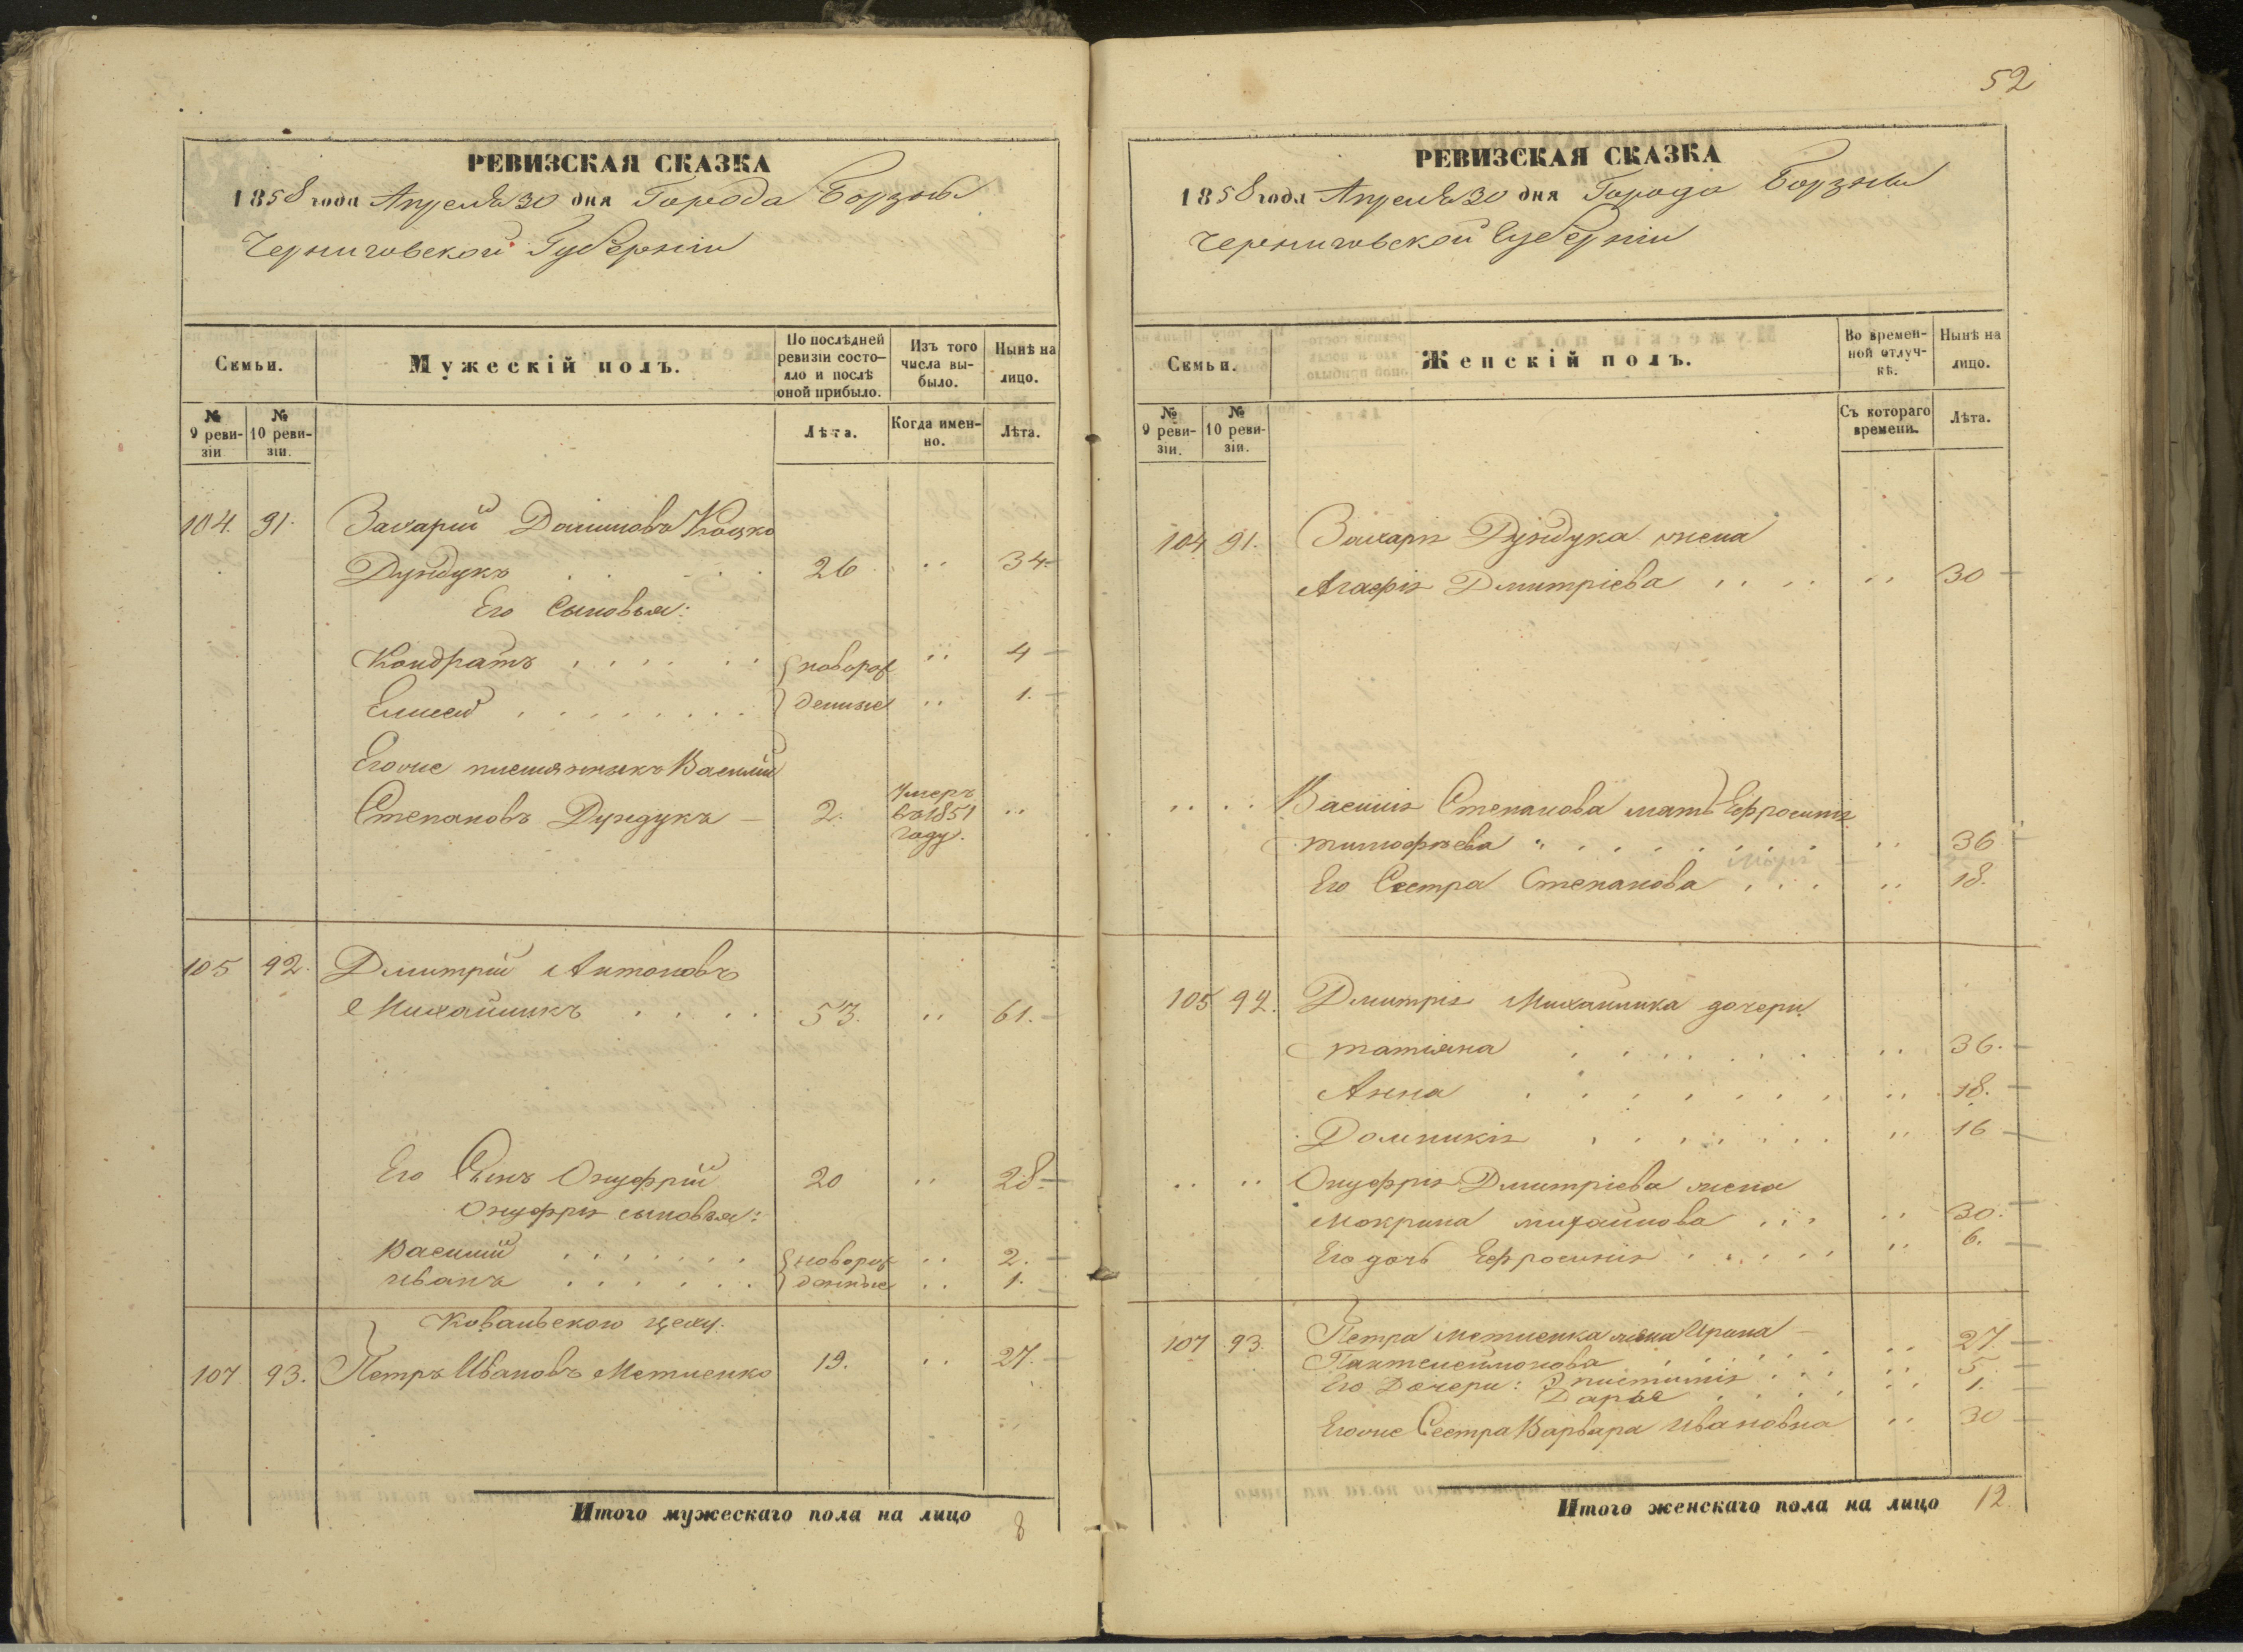 РЕВИЗСКАЯ СКАЗКА
1858 года Апреля 30 дня Города Борзны
Черниговской Губерніи
Семьи.
Мужескій полъ.
По послѣдней ревизіи состояло и послѣ оной прибыло.
Изъ того числа выбыло.
Нынѣ на лицо.
№ 9 ревизіи
№ 10 ревизіи.
Лѣта.
Когда именно.
Лѣта.
104. 91. Захарій
Дундукъ . . . . 26 " 34
Его Сыновья:
Кондратъ . . . . . . новорож " 4
Елисей . . . . . . . . денные " 1.
Егоже племянникъ Василій
Степановъ Дундукъ — 2. Умеръ въ 1851 году. "
105 92. Дмитрій Антоновъ
Михайликъ . . . . 53. " 61.
Его Сынъ Онуфрій 20 " 28
Онуфрія сыновья:
Василій . . . . . . . новорож " 2.
Иванъ . . . . . . данные " 1.
Ковальского цеху.
107 93. Петръ Ивановъ Метленко 19. " 27.
Итого мужескаго пола на лицо 8
52
РЕВИЗСКАЯ СКАЗКА
1858 года Апреля 30 дня Города Борзны
Черниговской Губерніи
Семьи.
Женскій полъ.
Во временной отлучкѣ.
Нынѣ на лицо.
№ 9 ревизіи.
№ 10 ревизіи.
Съ котораго времени.
Лѣта.
104 91. Захарія Дундука жена
Агафія Дмитріева . . . . " 30
" " Василія Степанова мать Ефросинія
Тимофѣева " . . . . . . . " 36
Его Сестра Степанова . . . " 18.
105 92. Дмитрія Михайлика дочери
Татіяна . . . . . . . " 36.
Анна . . . . . . . . " 18.
Домникія . . . . . . . " 16
" " Онуфрія Дмитріева жена
Мокрина Михайлова . . . " 30.
Его дочь Ефросинія . . . . . " 6.
107 93. Петра Метленка жена Ирина —
Пантелеймонова . . . . . . " 27.
Его Дочери: . . . " 5.
Дарья . . . . " 1.
Егоже Сестра Варвара Ивановна " 30
Итого женскаго пола на лицо 12.